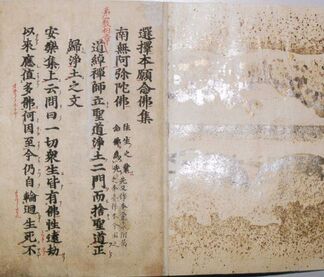 選擇本願念佛集
南無阿弥陀佛 往生之業
念佛爲先
道綽禪師立聖道淨土二門而捨聖道正
歸淨土之文
安樂集上云問曰一切衆生皆有佛性遠劫
以來應值多佛何因至今仍自輪迴生死不